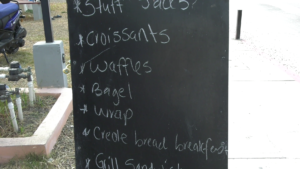 * Stuff Jacks
* Croissants
* Waffles
* Bagel
* wrap
* Creole bread breakfast
* Gill